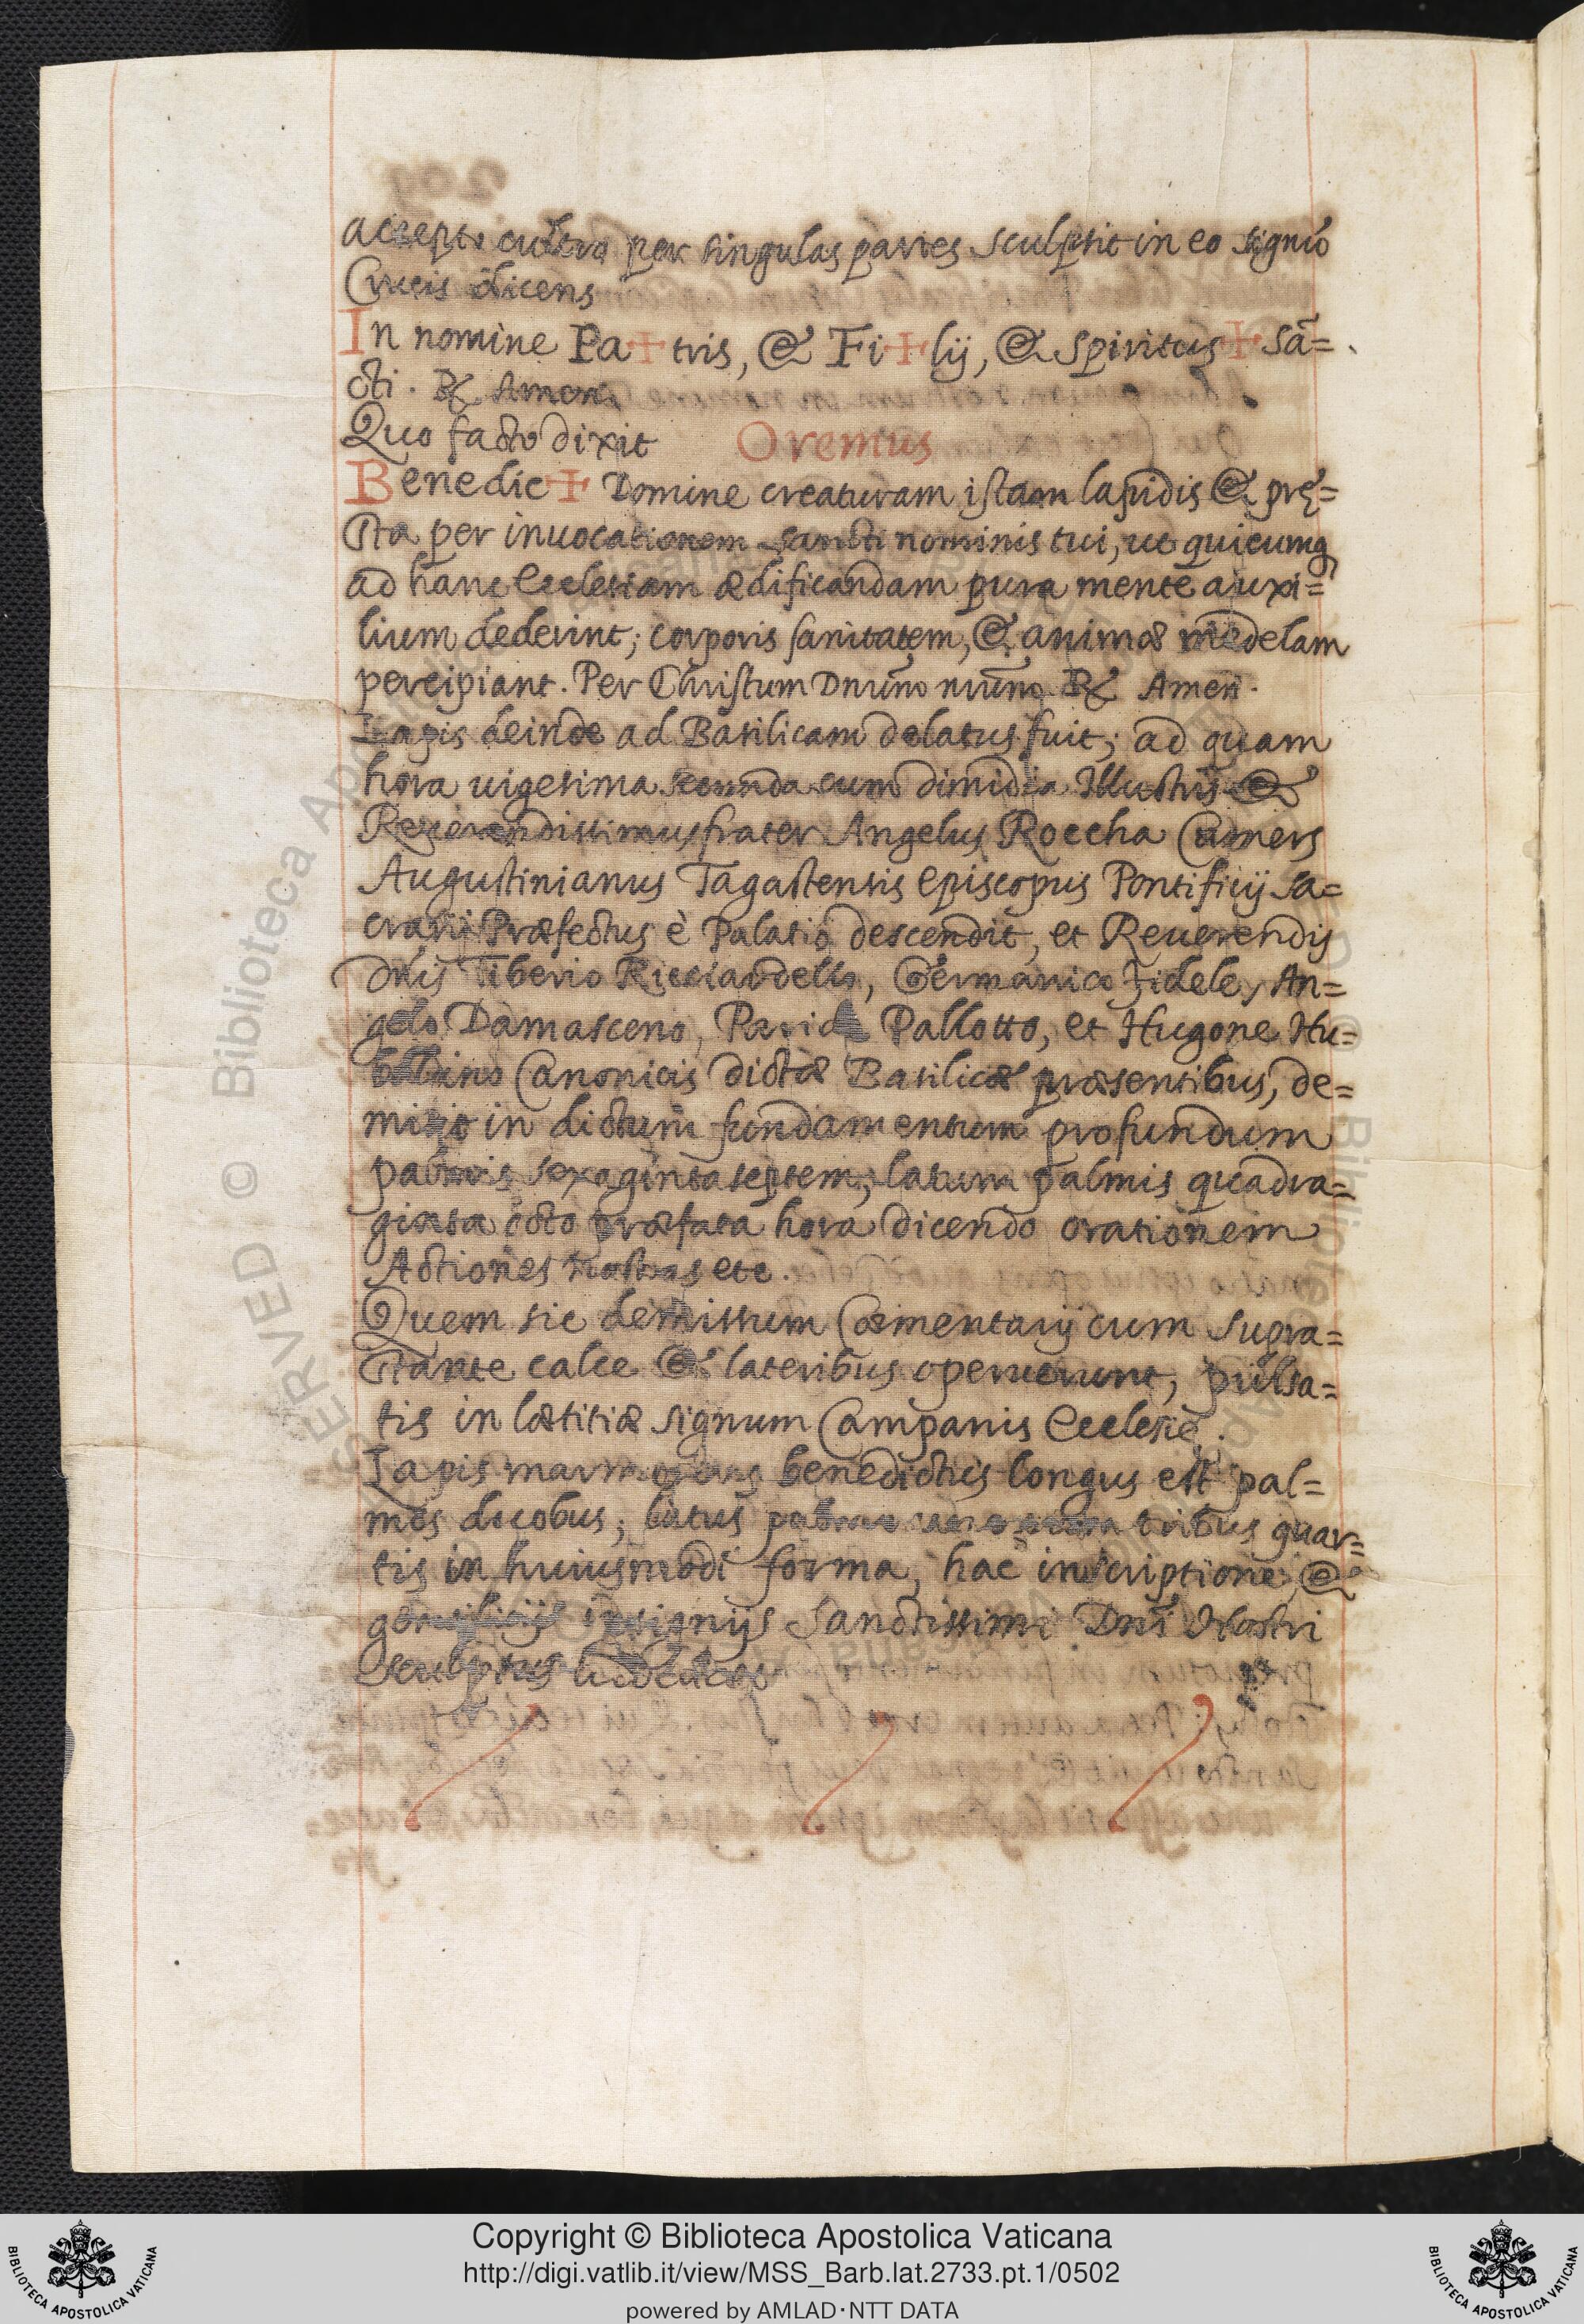 accepto cultro per singulas partes sculpsit in eo signũ
Crucis dicens
In nomine Pa+tris, & Fi+lij, & Spiritus + Sã=
cti. ℟ Amen.
Quo facto dixit Oremus
Benedic+ Domine creaturam istam lapidis & prę=
sta per inuocationem sancti nominis tui, ut quicumq
ad hanc Ecclesiam ædificandam pura mente auxi=
lium dederint; corporis sanitatem, & animæ medelam
percipiant. Per Christum Dnũm nrũm. ℟ Amen.
Lapis deinde ad Basilicam delatus fuit; ad quam
hora uigesima secunda cum dimidia Illustris &
Reuerendissimus frater Angelus Roccha Camers
Augustinianus Tagastensis Episcopus Pontificij Sa=
crarij Præfectus è Palatio descendit, et Reuerendis
Dñis Tiberio Ricciardello, Germanico Fidele, An=
gelo Damasceno, Paride Pallotto, et Hugone Hu=
baldino Canonicis dictæ Basilicæ præsentibus, de=
misit in dictum fundamentum profundum
palmis sexaginta septem; latum palmis quadra=
ginta octo præfata hora dicendo orationem
Actiones nostras etc.
Quem sic demissum Cæmentarij cum supra=
stante calce & lateribus operuerunt, pulsa=
tis in lætitiæ signum Campanis Ecclesię.
Lapis marmoreus benedictus longus est pal=
mos duobus; latus palmo uno cum tribus quar=
tis in huiusmodi forma, hac inscriptione &
gentilicijs insignijs Sanctissimi Dnĩ Nostri
sculptus
Copyright © Biblioteca Apostolica Vaticana
http://digi.vatlib.it/view/MSS_Barb.lat.2733.pt.1/0502
powered by AMLAD·NTT DATA
BIBLIOTECA APOSTOLICA VATICANA
BIBLIOTECA APOSTOLICA VATICANA